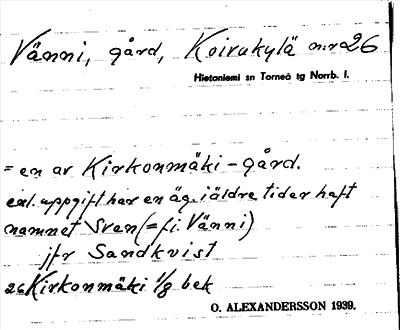 Vänni, gård, Koirakylä n:r 26
Hietaniemi sn Torneå tg Norrb. l.
= en av Kirkonmäki-gård.
enl. uppgift har en äg. i äldre tider haft
namnet Sven (= fi. Vänni)
jfr Sandkvist
26 Kirkonmäki 1/8 bek
O. ALEXANDERSSON 1939.